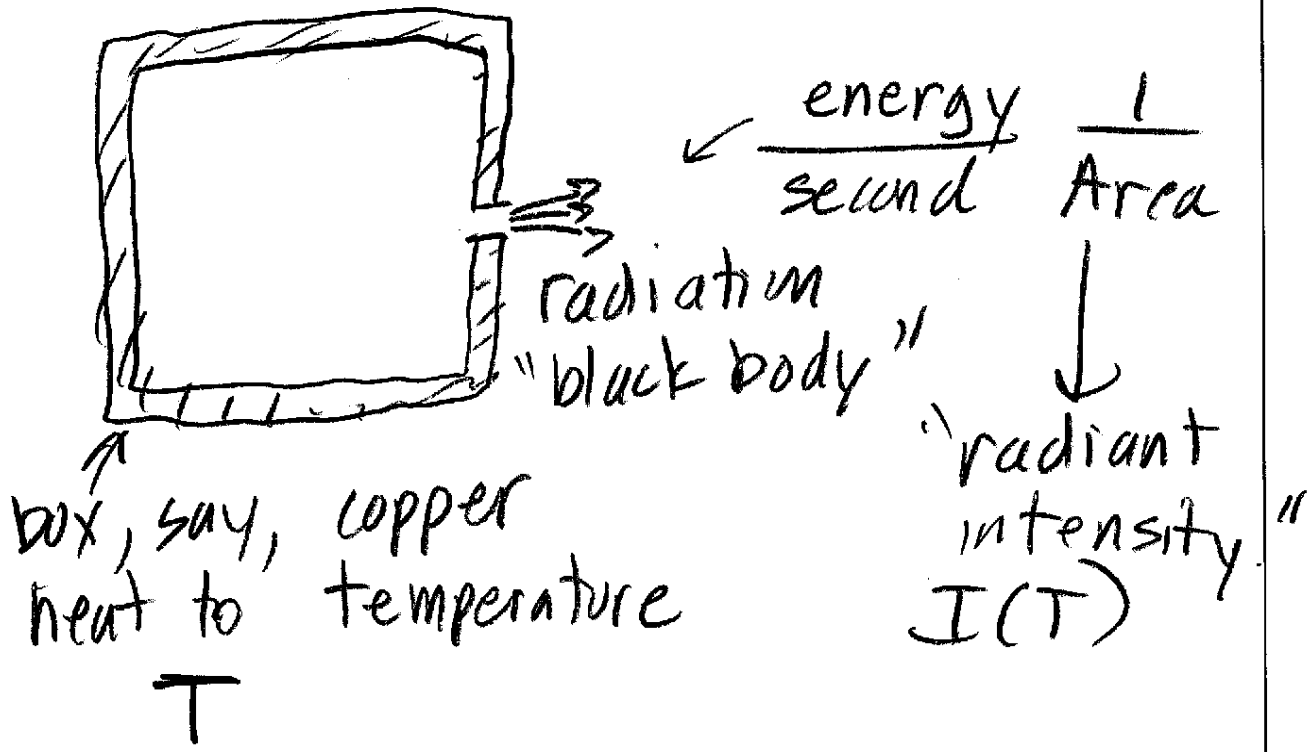 energy 1
second Area
radiation
"black body"
"radiant
intensity"
I(T)
box, say, copper
heat to temperature
T